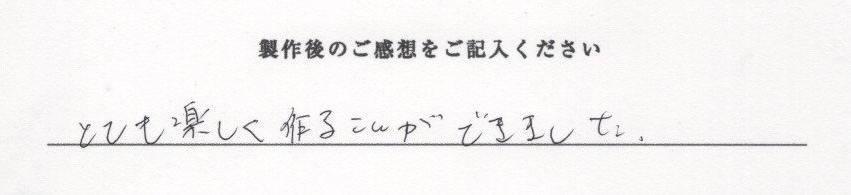 製作後のご感想をご記入ください
とても楽しく作ることができました。